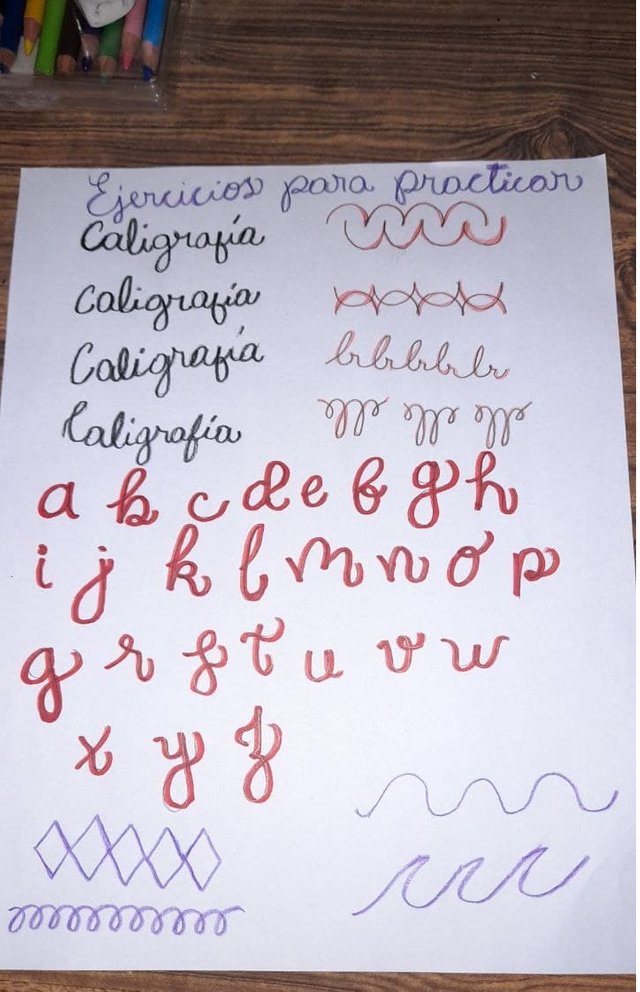 Ejercicios para practicar
Caligrafía
Caligrafía
Caligrafía
Caligrafía
a b c d e f g h
i j k l m n o p
q r s t u v w
x y z